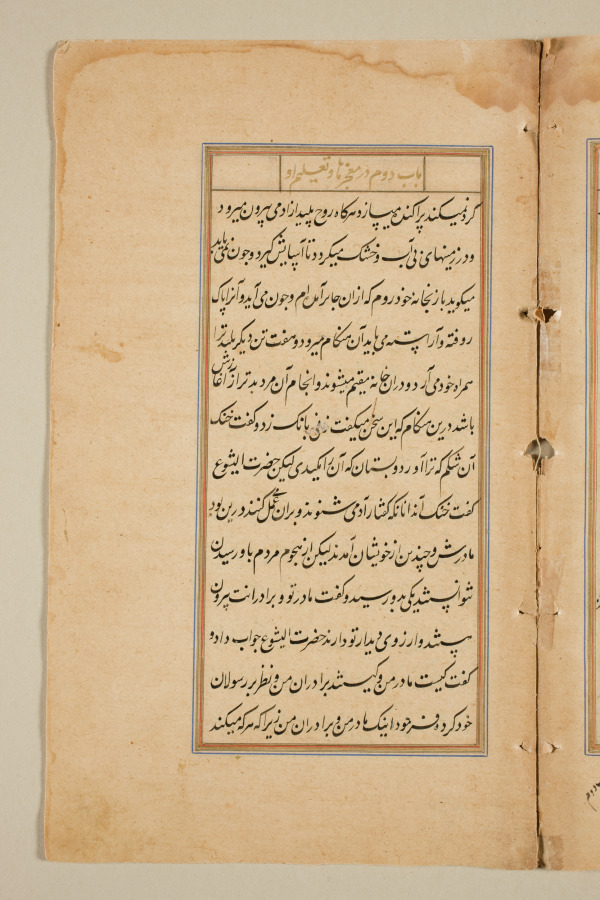 باب دوم در معجزها و تعلیم او
گرد نمیکند پراکنده میسازد و هرگاه روح پلید از ادمی بیرون میرود
و در زمینهای بی آب و خشک میگردد تا آسایش گیرد و چون نمی یابد
میگوید باز بخانهٔ خود روم که ازان جا برآمده ام و چون می آید و آنرا پاک
روفته و آراسته می یابد آن هنگام میرود و هفت تن دیگر پلیدتر
همراه خود می آرد و دران خانه مقیم میشوند و انجام آن مرد بدتر از آغازش
باشد درین هنگام که این سخن میگفت زنی بانک زد و گفت خنک
آن شکم که ترا آورد و پستان که آن را مکیدی لیکن حضرت ایشوع
گفت خنک آنانکه گفتار آدمی شنوند و بران عمل کنند درین بود
مادرش و چندین از خویشان آمدند لیکن از هجوم مردم باو رسیدن
نتوانستند یکی بدو رسید و گفت مادر تو و برادرانت بیرون
هستند و ارزوی دیدار تو دارند حضرت ایشوع جواب داد و
گفت کیست مادر من و کیستند برادران من و نظر بر رسولان
خود کرد و فرمود اینک مادر من و برادران من زیرا که هر که میکند